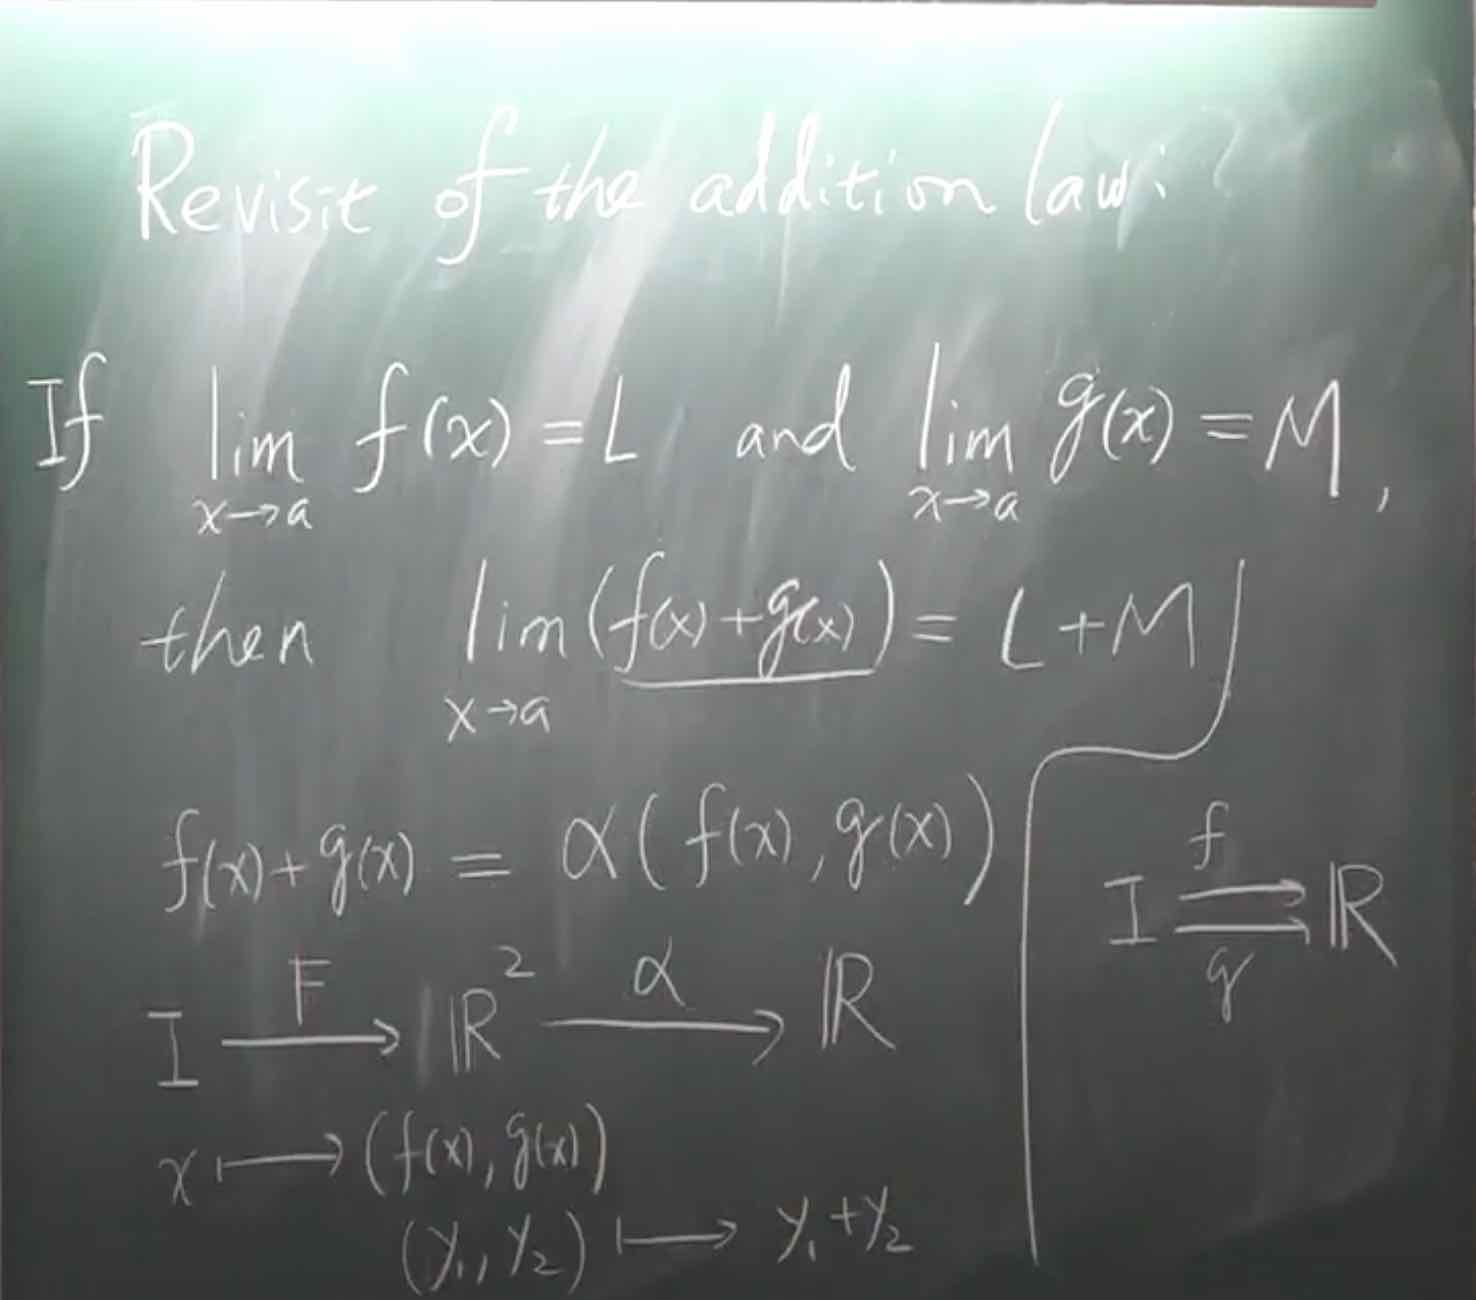 Revisit of the addition law:
If lim f(x) = L and lim g(x) = M,
x→a x→a
then lim (f(x)+g(x)) = L+M
x→a
f(x)+g(x) = α(f(x), g(x))
I F→ ℝ² α→ ℝ
x ↦ (f(x), g(x))
(y₁, y₂) ↦ y₁+y₂
f
I ⇉ ℝ
g